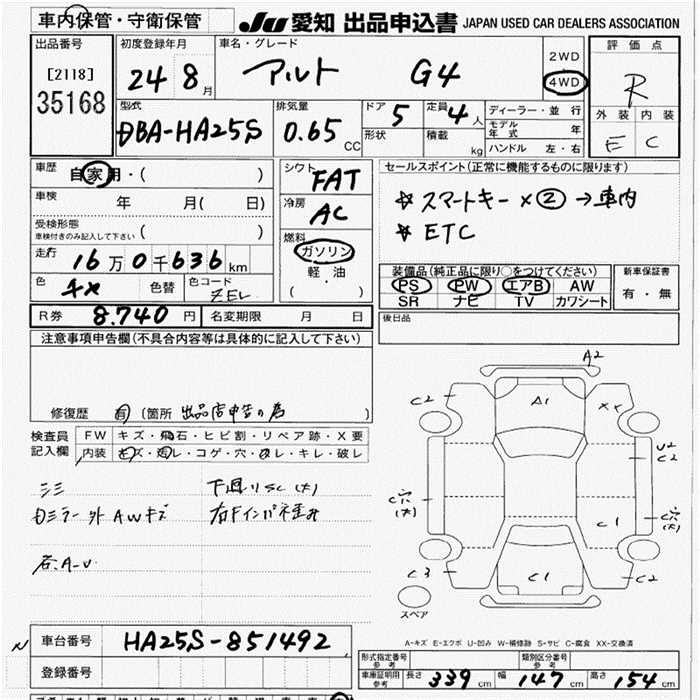 車内保管・守衛保管
JU 愛知 出品申込書 JAPAN USED CAR DEALERS ASSOCIATION
出品番号
[2118]
35168
初度登録年月
24 8月
車名・グレード
アルト G4
2WD
4WD
評価点
R
外装 内装
E C
型式
DBA-HA25S
排気量
0.65 CC
ドア 5
形状
定員 4 人
積載 kg
ディーラー・並行
モデル年式 年
ハンドル 左・右
車歴
自家用・( )
車検 年 月( 日)
受検形態
車検付きのみ記入して下さい ( )
走行
16万0千636km
色 色替 色コード
ZEL
シフト
FAT
冷房
AC
燃料
ガソリン
軽・油
( )
セールスポイント(正常に機能するものに限ります)
☆スマートキー×② →車内
☆ETC
装備品(純正品に限り○をつけてください)
PS PW エアB AW
SR ナビ TV カワシート
新車保証書
有・無
R券 8.740円 名変期限 月 日
後日品
注意事項申告欄(不具合内容等は具体的に記入して下さい)
修復歴 有 (箇所 )
検査員記入欄
FW キズ・飛石・ヒビ割・リペア跡・X要
内装 キズ・汚レ・コゲ・穴・スレ・キレ・破レ
下廻りSC(大)
AWキズ
A-U
A2
C2
A1
XX
U2
C2
C穴
(大)
C穴
(大)
C1
C3
C1
C2
スペア
A-キズ E-エクボ U-凹み W-補修跡 S-サビ C-腐食 XX-交換済
車台番号 HA25S-851492
登録番号
形式指定番号
参考
類別区分番号
参考
車庫証明用
参考
長さ 339cm 幅 147cm 高さ 154cm